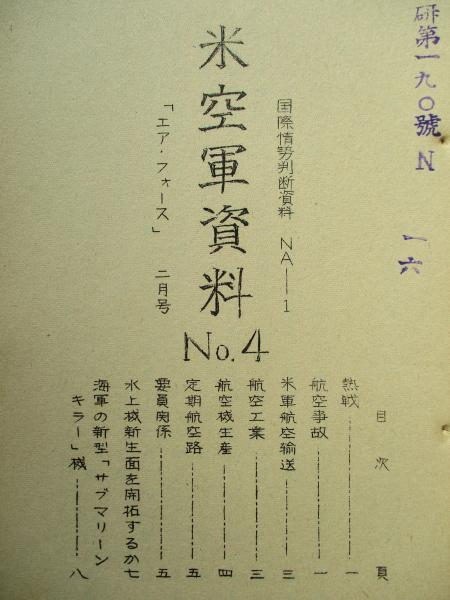 研第一九〇號 N
一六
国際情勢判断資料 NA—1
米空軍資料
No.4
「エア・フォース」 二月号
目次 頁
熱戦 一
航空事故 一
米軍航空輸送 三
航空工業 三
航空機生産 四
定期航空路 五
要員関係 五
水上機新生面を開拓するか 七
海軍の新型「サブマリーン
キラー」機 八